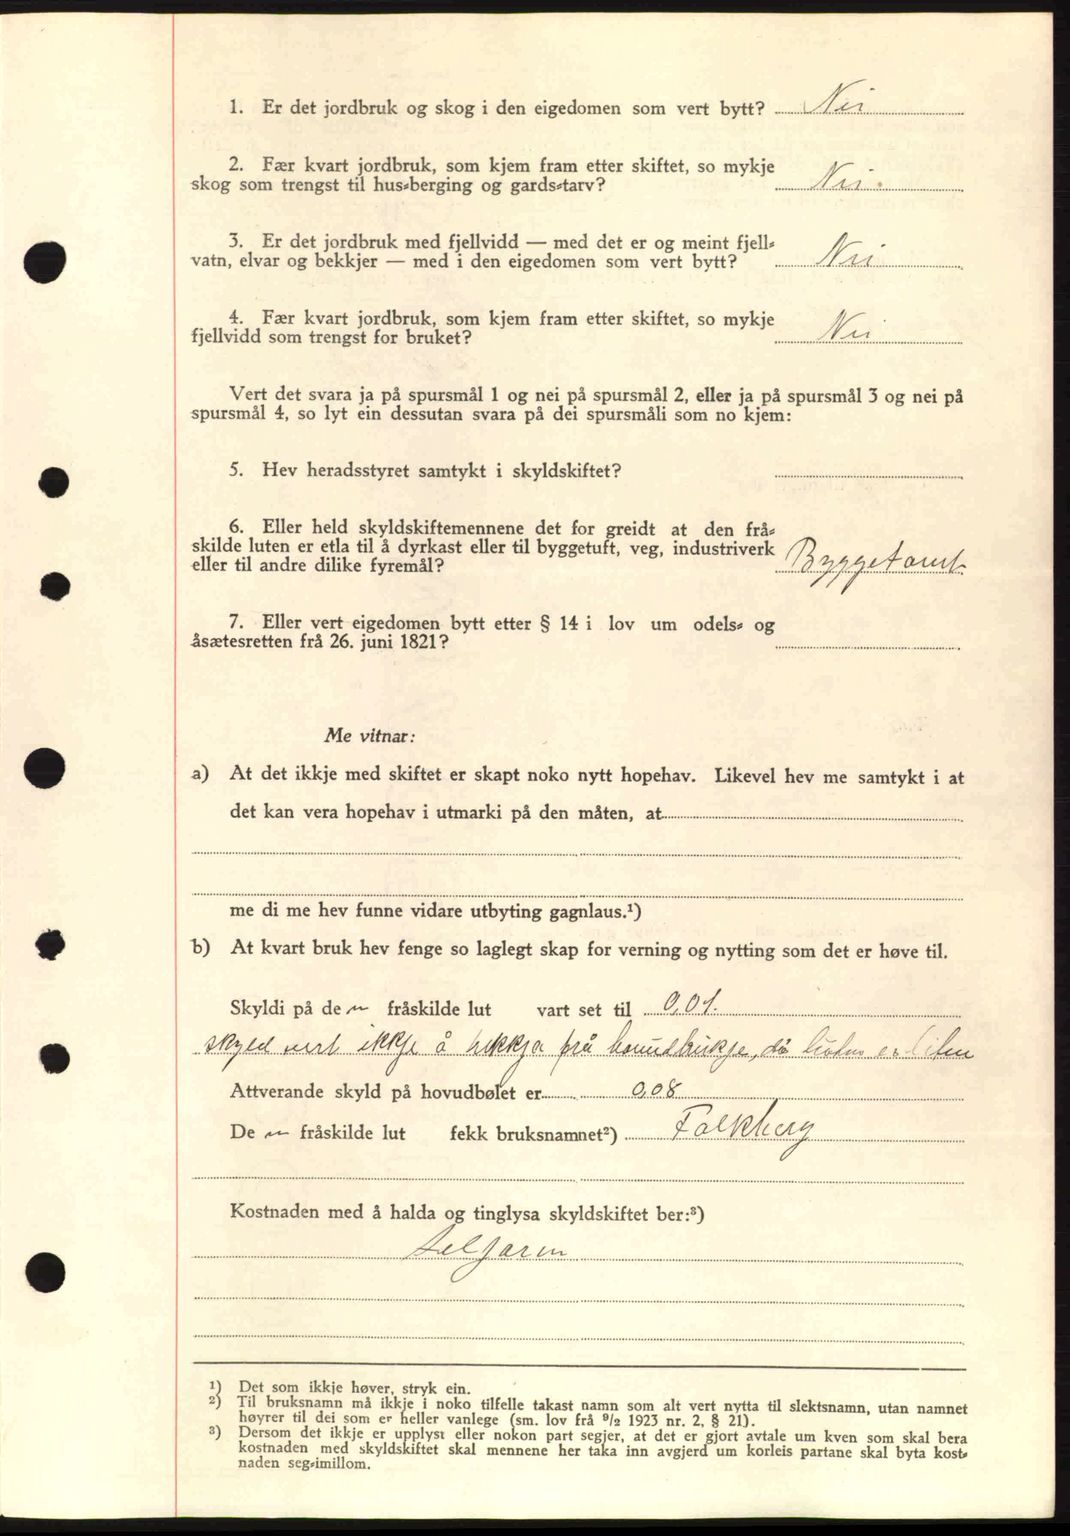 1. Er det jordbruk og skog i den eigedomen som vert bytt? Nei
2. Fær kvart jordbruk, som kjem fram etter skiftet, so mykje
skog som trengst til hus-berging og gards-tarv? Nei.
3. Er det jordbruk med fjellvidd — med det er og meint fjell-
vatn, elvar og bekkjer — med i den eigedomen som vert bytt? Nei
4. Fær kvart jordbruk, som kjem fram etter skiftet, so mykje
fjellvidd som trengst for bruket? Nei
Vert det svara ja på spursmål 1 og nei på spursmål 2, eller ja på spursmål 3 og nei på
spursmål 4, so lyt ein dessutan svara på dei spursmåli som no kjem:
5. Hev heradsstyret samtykt i skyldskiftet?
6. Eller held skyldskiftemennene det for greidt at den frå-
skilde luten er etla til å dyrkast eller til byggetuft, veg, industriverk
eller til andre dilike fyremål? Byggetomt
7. Eller vert eigedomen bytt etter § 14 i lov um odels- og
åsætesretten frå 26. juni 1821?
Me vitnar:
a) At det ikkje med skiftet er skapt noko nytt hopehav. Likevel hev me samtykt i at
det kan vera hopehav i utmarki på den måten, at
me di me hev funne vidare utbyting gagnlaus.¹)
b) At kvart bruk hev fenge so laglegt skap for verning og nytting som det er høve til.
Skyldi på de n fråskilde lut vart set til 0,01.
skyld vert ikkje å trekkja frå hovudbrukje, då luten er liten
Attverande skyld på hovudbølet er 0,08
De n fråskilde lut fekk bruksnamnet²) Falkberg
Kostnaden med å halda og tinglysa skyldskiftet ber:³)
Seljaren
¹) Det som ikkje høver, stryk ein.
²) Til bruksnamn må ikkje i noko tilfelle takast namn som alt vert nytta til slektsnamn, utan namnet
høyrer til dei som er heller vanlege (sm. lov frå 9/2 1923 nr. 2, § 21).
³) Dersom det ikkje er upplyst eller nokon part segjer, at det er gjort avtale um kven som skal bera
kostnaden med skyldskiftet skal mennene her taka inn avgjerd um korleis partane skal byta kost-
naden seg-imillom.